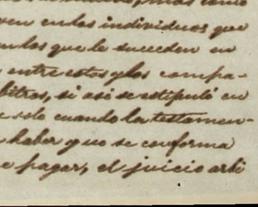 mas como
ven en los individuos que
en los que le suceden en
entre estos y los compa-
bitros, si así se estipuló en
solo cuando la testamen-
haber y no se conforma
pagar, el juicio arbi